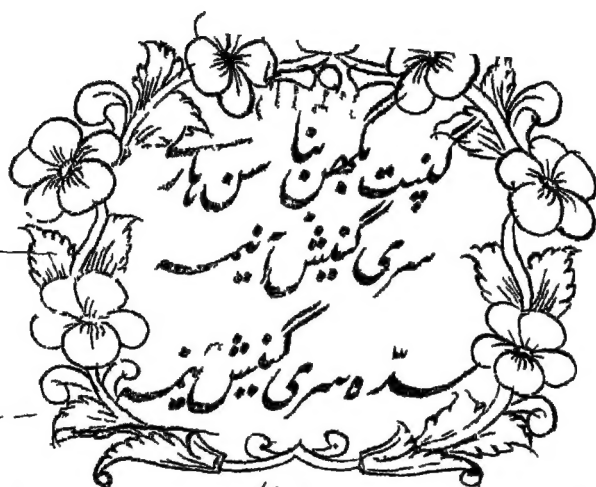 گنپت بگھن بنا سن ہارے
سری گنیش آنیمہ
سدّہ سری گنیش نیمہ